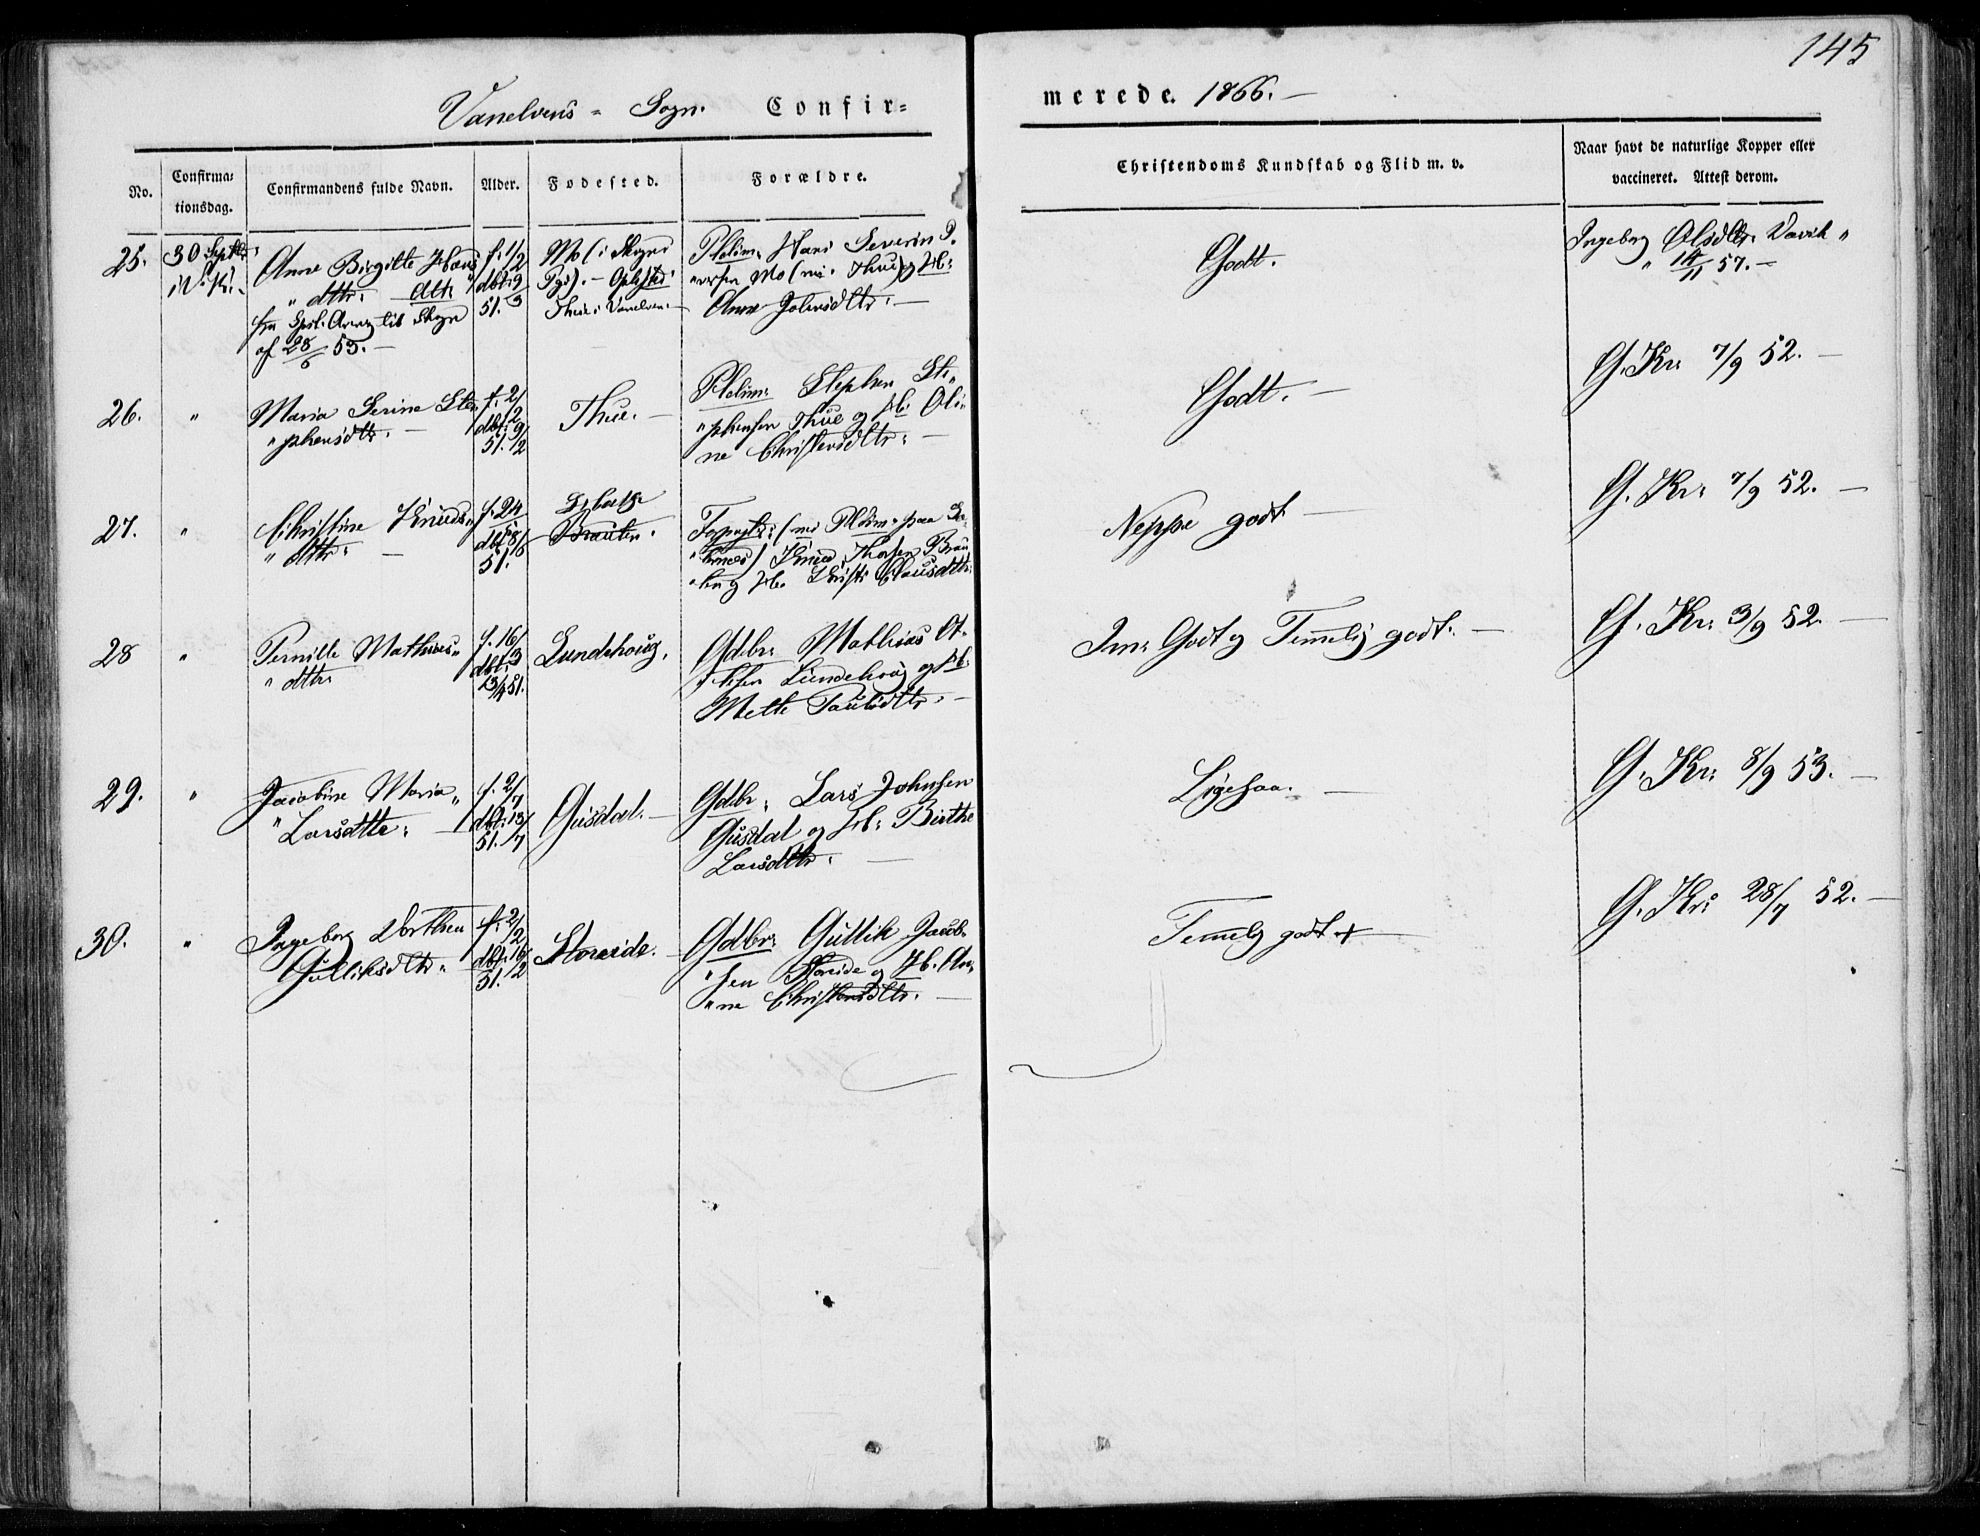 145
Vanelvens - Sogn. Confir=
merede. 1866. —
No.
Confirma:
tionsdag.
Confirmandens fulde Navn.
Alder.
Fødested.
Forældre.
Christendoms Kundskab og Flid m. v.
Naar havt de naturlige Kopper eller
vaccineret. Attest derom.
25.
30 Septbr:
Anne Birgitte Hans
" dttr. dttr
af 28/6 53. —
f. 1/2
dbt. 9/3
51.
Mo (i Skyns
Pgj). — Opfsted
Thue i Vanelven —
Pldsm: Hans Severin P.
Mo (nu Thue) og Hb:
Anne dttr. —
Godt.
Ingeborg Olsdttr Vavik "
" 14/11 57. —
26.
"
Maria Serine Ste
" phensdtr. —
f. 2/2
dbt. 9/2
51.
Thue. —
Pldsm: Stephen Ste
" phensen Thue og Hb. Oli
ne Christensdttr. —
Godt. —
G. Kr. 7/9 52. —
27.
"
Christine Knuds
" dttr. —
f. 24/5
dbt. 8/6
51.
Brauten.
(nu Pldsm paa
Knud Brau
og Hb. Clausdttr.
Neppe godt —
G. Kr. 7/9 52. —
28
"
Pernille Mathias
" dttr
f. 16/3
dbt.
13/4 51.
Lundehoug.
Gdbr: Mathias
Lundehoug og Hb.
Mette Paulsdttr. —
Im. Godt og Temelig godt. —
G. Kr. 3/9 52. —
29.
"
Jacobine Maria
" Larsdttr. —
f. 2/7
dbt. 13/7
51.
Gusdal. —
Gdbr. Lars Johnsen
Gusdal og Hb. Birthe
Larsdttr. —
Ligesaa. —
G. Kr. 8/9 53. —
30.
"
Ingeborg Dorthea
Gulliksdttr. —
f. 2/2
dbt. 16/2
51.
Storeide. —
Gdbr: Gullik Jacob
" sen Storeide og Hb. An
" ne Christensdttr. —
Temelig godt + —
G. Kr. 28/7 52. —